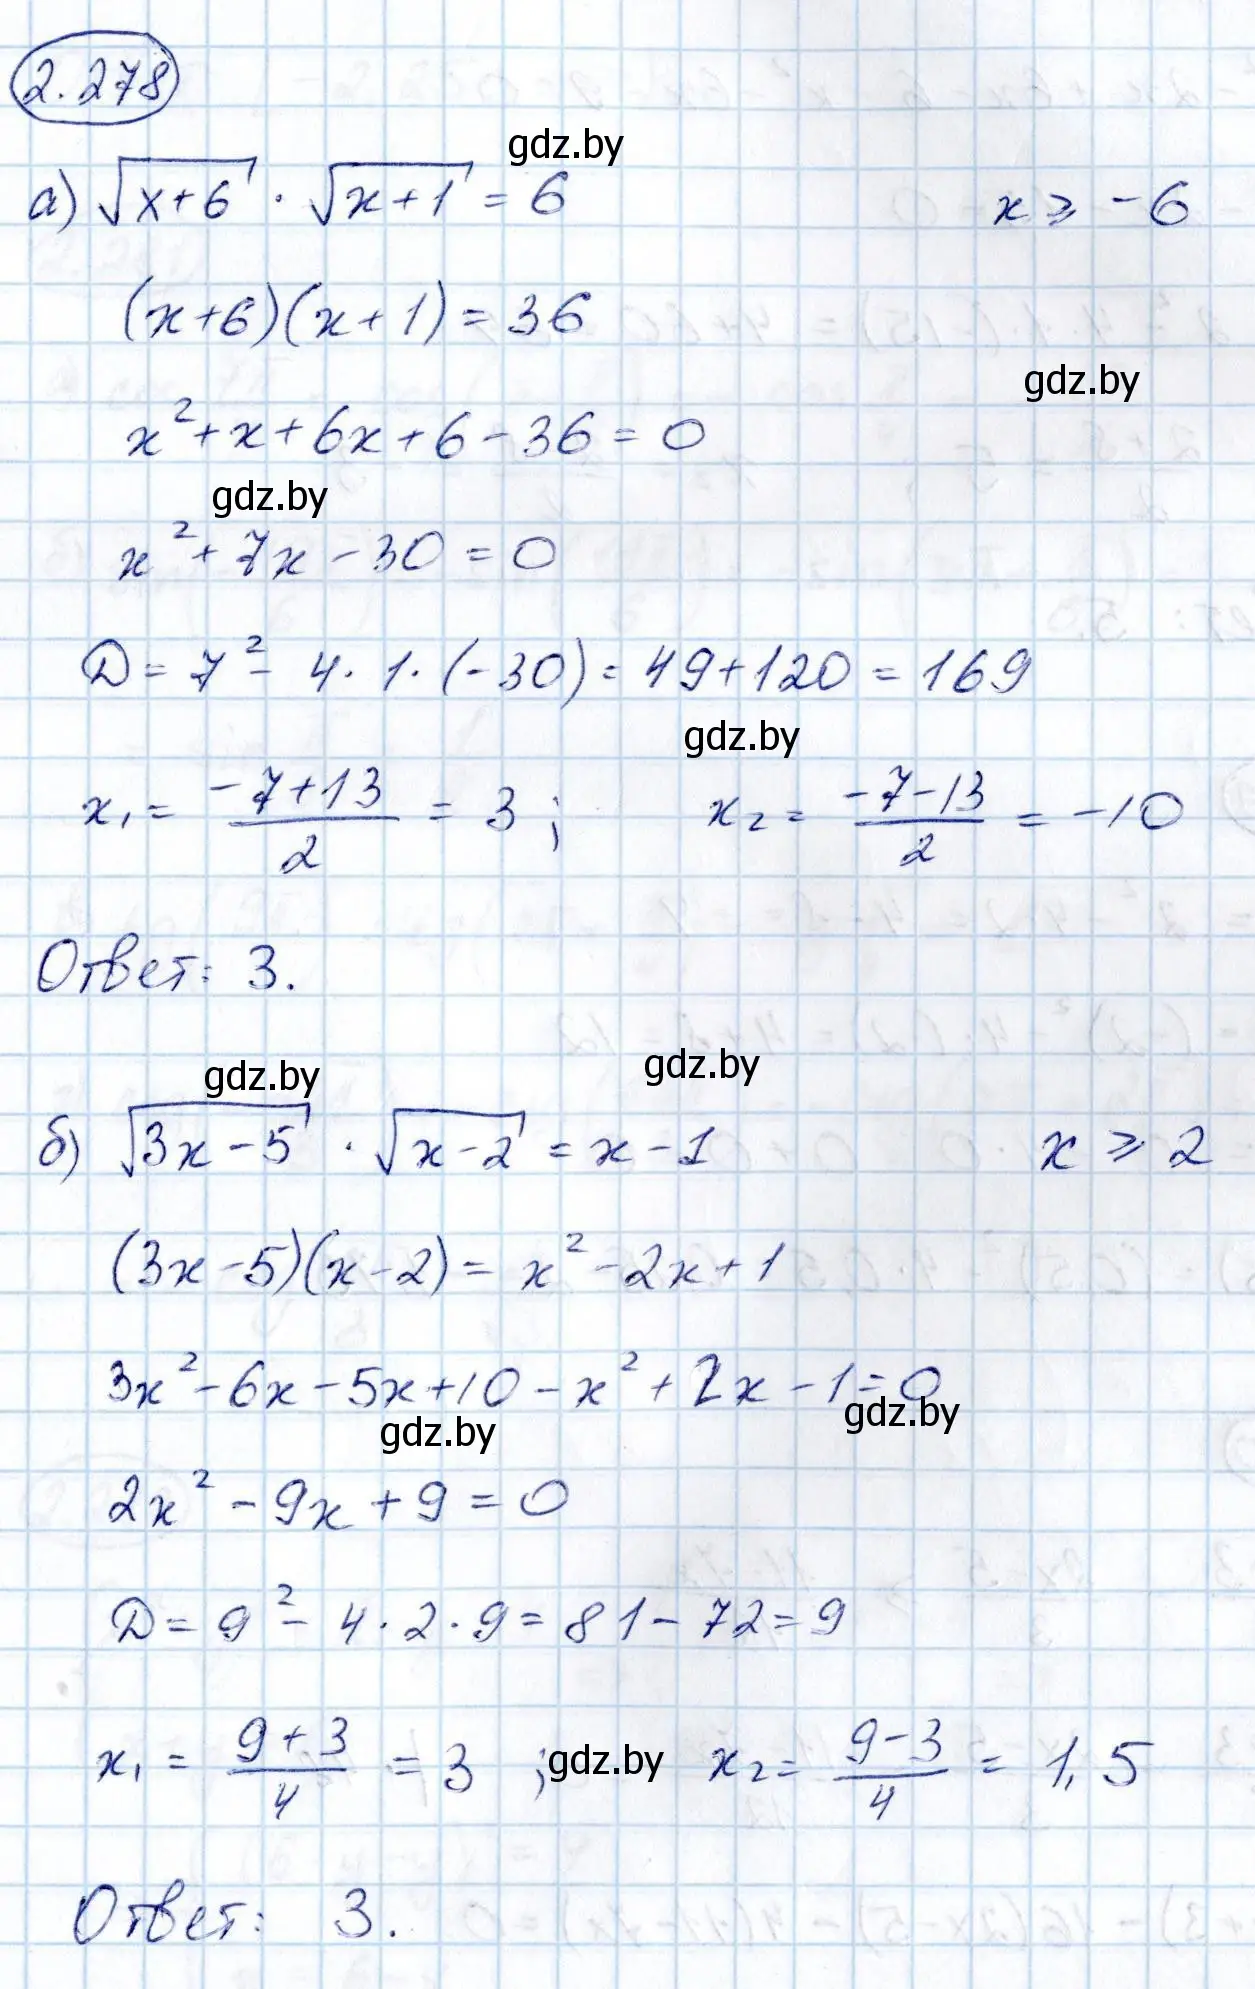 2.278
gdz.by
а) √(x+6) · √(x+1) = 6        x ⩾ -6
(x+6)(x+1) = 36
gdz.by
x² + x + 6x + 6 - 36 = 0
gdz.by
x² + 7x - 30 = 0
D = 7² - 4 · 1 · (-30) = 49 + 120 = 169
gdz.by
x₁ = (-7+13)/2 = 3 ;        x₂ = (-7-13)/2 = -10
Ответ: 3.
gdz.by        gdz.by
б) √(3x-5) · √(x-2) = x - 1        x ⩾ 2
(3x-5)(x-2) = x² - 2x + 1
3x² - 6x - 5x + 10 - x² + 2x - 1 = 0
gdz.by        gdz.by
2x² - 9x + 9 = 0
D = 9² - 4 · 2 · 9 = 81 - 72 = 9
x₁ = (9+3)/4 = 3 ; gdz.by x₂ = (9-3)/4 = 1,5
Ответ: 3.